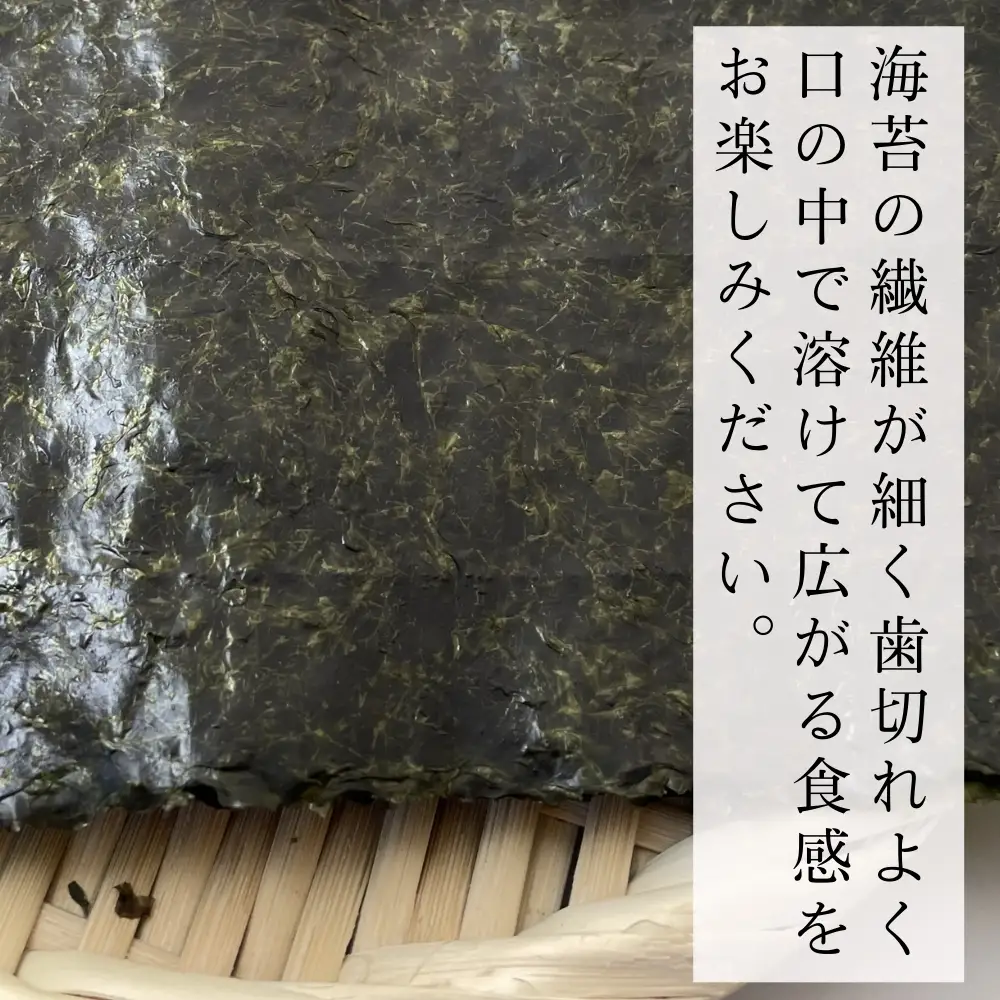 海苔の繊維が細く歯切れよく
口の中で溶けて広がる食感を
お楽しみください。